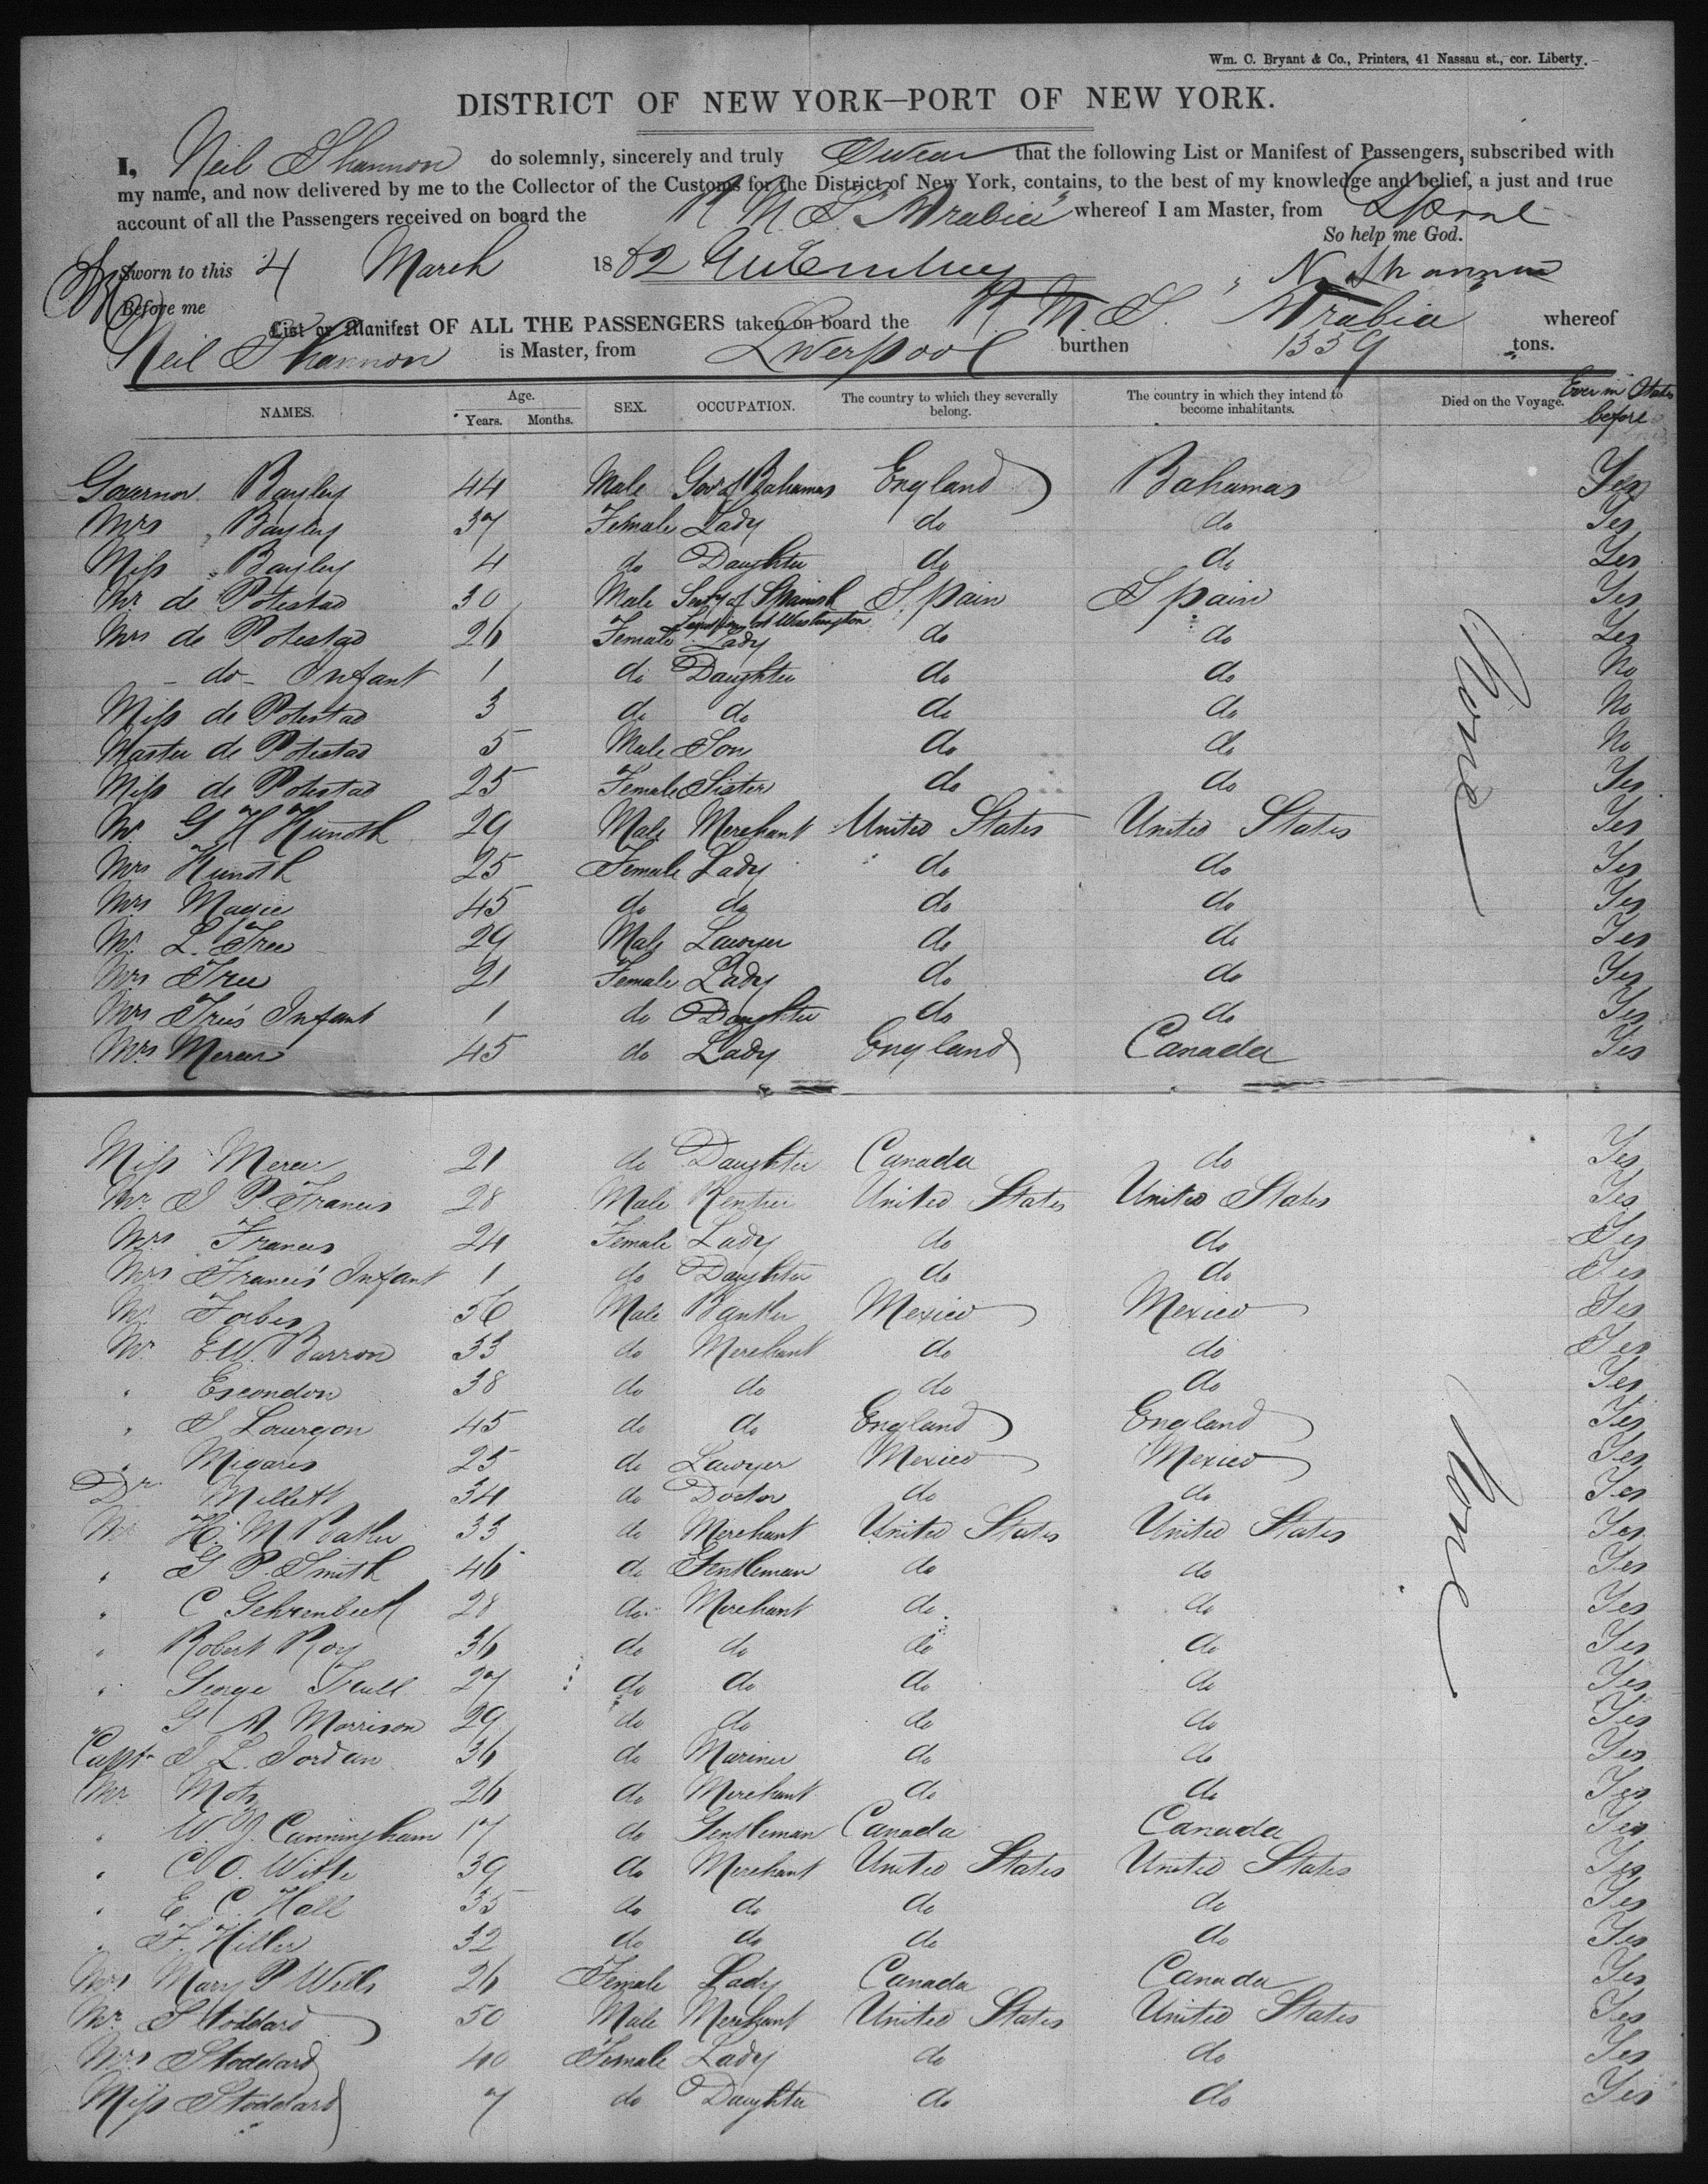 Wm. C. Bryant & Co., Printers, 41 Nassau st., cor. Liberty.
DISTRICT OF NEW YORK—PORT OF NEW YORK.
I, Neil Shannon do solemnly, sincerely and truly Swear that the following List or Manifest of Passengers, subscribed with
my name, and now delivered by me to the Collector of the Customs for the District of New York, contains, to the best of my knowledge and belief, a just and true
account of all the Passengers received on board the R M S "Arabia" whereof I am Master, from Lpool
So help me God.
Sworn to this 4 March 1862 N. Shannon
Before me
List or Manifest OF ALL THE PASSENGERS taken on board the R. M. S. Arabia whereof
Neil Shannon is Master, from Liverpool burthen 1339 tons.
NAMES. Age. Years. Months. SEX. OCCUPATION. The country to which they severally belong. The country in which they intend to become inhabitants. Died on the Voyage. Ever in States before
Governor Bayley 44 Male Govr of Bahamas England Bahamas Yes
Mrs " Bayley 37 Female Lady do do Yes
Miss " Bayley 4 do Daughter do do Yes
Mr de Potestad 30 Male Secty of Spanish Legation at Washington Spain Spain Yes
Mrs de Potestad 26 Female Lady do do Yes
- do - Infant 1 do Daughter do do No
Miss de Potestad 3 do do do do No
Master de Potestad 5 Male Son do do No
Miss de Potestad 25 Female Sister do do Yes
Mr G H Hunoth 29 Male Merchant United States United States Yes
Mrs Hunoth 25 Female Lady do do Yes
Mrs Magie 45 do do do do Yes
Mr L. Tree 29 Male Lawyer do do Yes
Mrs Tree 21 Female Lady do do Yes
Mrs Tree's Infant 1 do Daughter do do Yes
Mrs Mercer 45 do Lady England Canada Yes
None
Miss Mercer 21 do Daughter Canada do Yes
Mr J P. Francis 28 Male Rentier United States United States Yes
Mrs Francis 24 Female Lady do do Yes
Mrs Francis' Infant 1 do Daughter do do Yes
Mr Forbes 56 Male Banker Mexico Mexico Yes
Mr E.W. Barron 33 do Merchant do do Yes
" Escondon 38 do do do do Yes
" 45 do do England England Yes
" Migares 25 do Lawyer Mexico Mexico Yes
Dr. Millett 34 do Doctor do do Yes
Mr H. M Baker 33 do Merchant United States United States Yes
" G P. Smith 46 do Gentleman do do Yes
" C Gehrenbeck 28 do Merchant do do Yes
" Robert Roy 36 do do do do Yes
" George Trull 27 do do do do Yes
" G A Morrison 29 do do do do Yes
Capt J L. Jordan 36 do Mariner do do Yes
Mr Motz 26 do Merchant do do Yes
" W. J. Cunningham 17 do Gentleman Canada Canada Yes
" C. O. Witte 39 do Merchant United States United States Yes
" E. C. Hall 35 do do do do Yes
" F. Hiller 32 do do do do Yes
Mrs Mary P Wells 26 Female Lady Canada Canada Yes
Mr Stoddard 50 Male Merchant United States United States Yes
Mrs Stoddard 40 Female Lady do do Yes
Miss Stoddard 7 do Daughter do do Yes
None